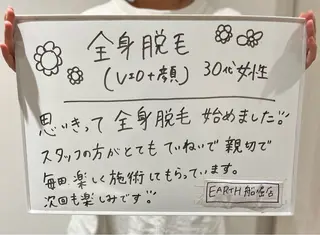 全身脱毛
(VIO+顔) 30代女性
思いきって全身脱毛始めました!!
スタッフの方がとてもていねいで親切で
毎回楽しく施術してもらっています。
次回も楽しみです!!
EARTH 船堀店